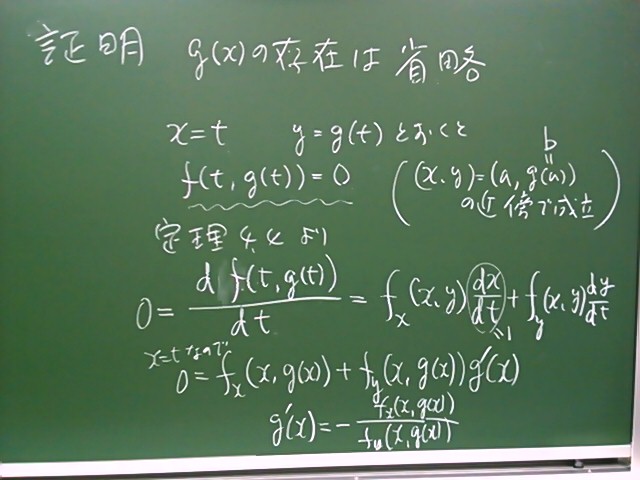 証明 g(x)の存在は省略
x=t y=g(t) とおくと
f(t, g(t))=0 ((x, y)=(a, g(a)) の近傍で成立)
b
॥
定理4.4より
0 = d f(t, g(t)) / dt = f_x(x, y) dx/dt + f_y(x, y) dy/dt
=1
x=tなので
0 = f_x(x, g(x)) + f_y(x, g(x)) g'(x)
g'(x) = - f_x(x, g(x)) / f_y(x, g(x))